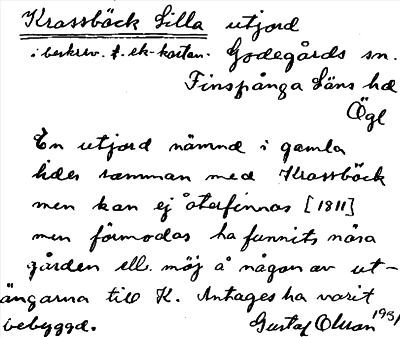 Krassböck Lilla utjord
i beskrev. t. ek-kartan. Godegårds sn.
Finspånga Läns hd
Ögl
En utjord nämnd i gamla
tider samman med Krassböck
men kan ej återfinnas [1811]
men förmodas ha funnits nära
gården ell. möj å någon av ut-
ängarna till K. Antages ha varit
bebyggd. Gustaf Olsson 1931